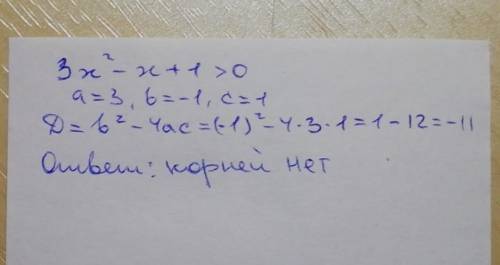 3x² - x + 1 > 0
a = 3, b = -1, c = 1
D = b² - 4ac = (-1)² - 4 · 3 · 1 = 1 - 12 = -11
Ответ: корней нет